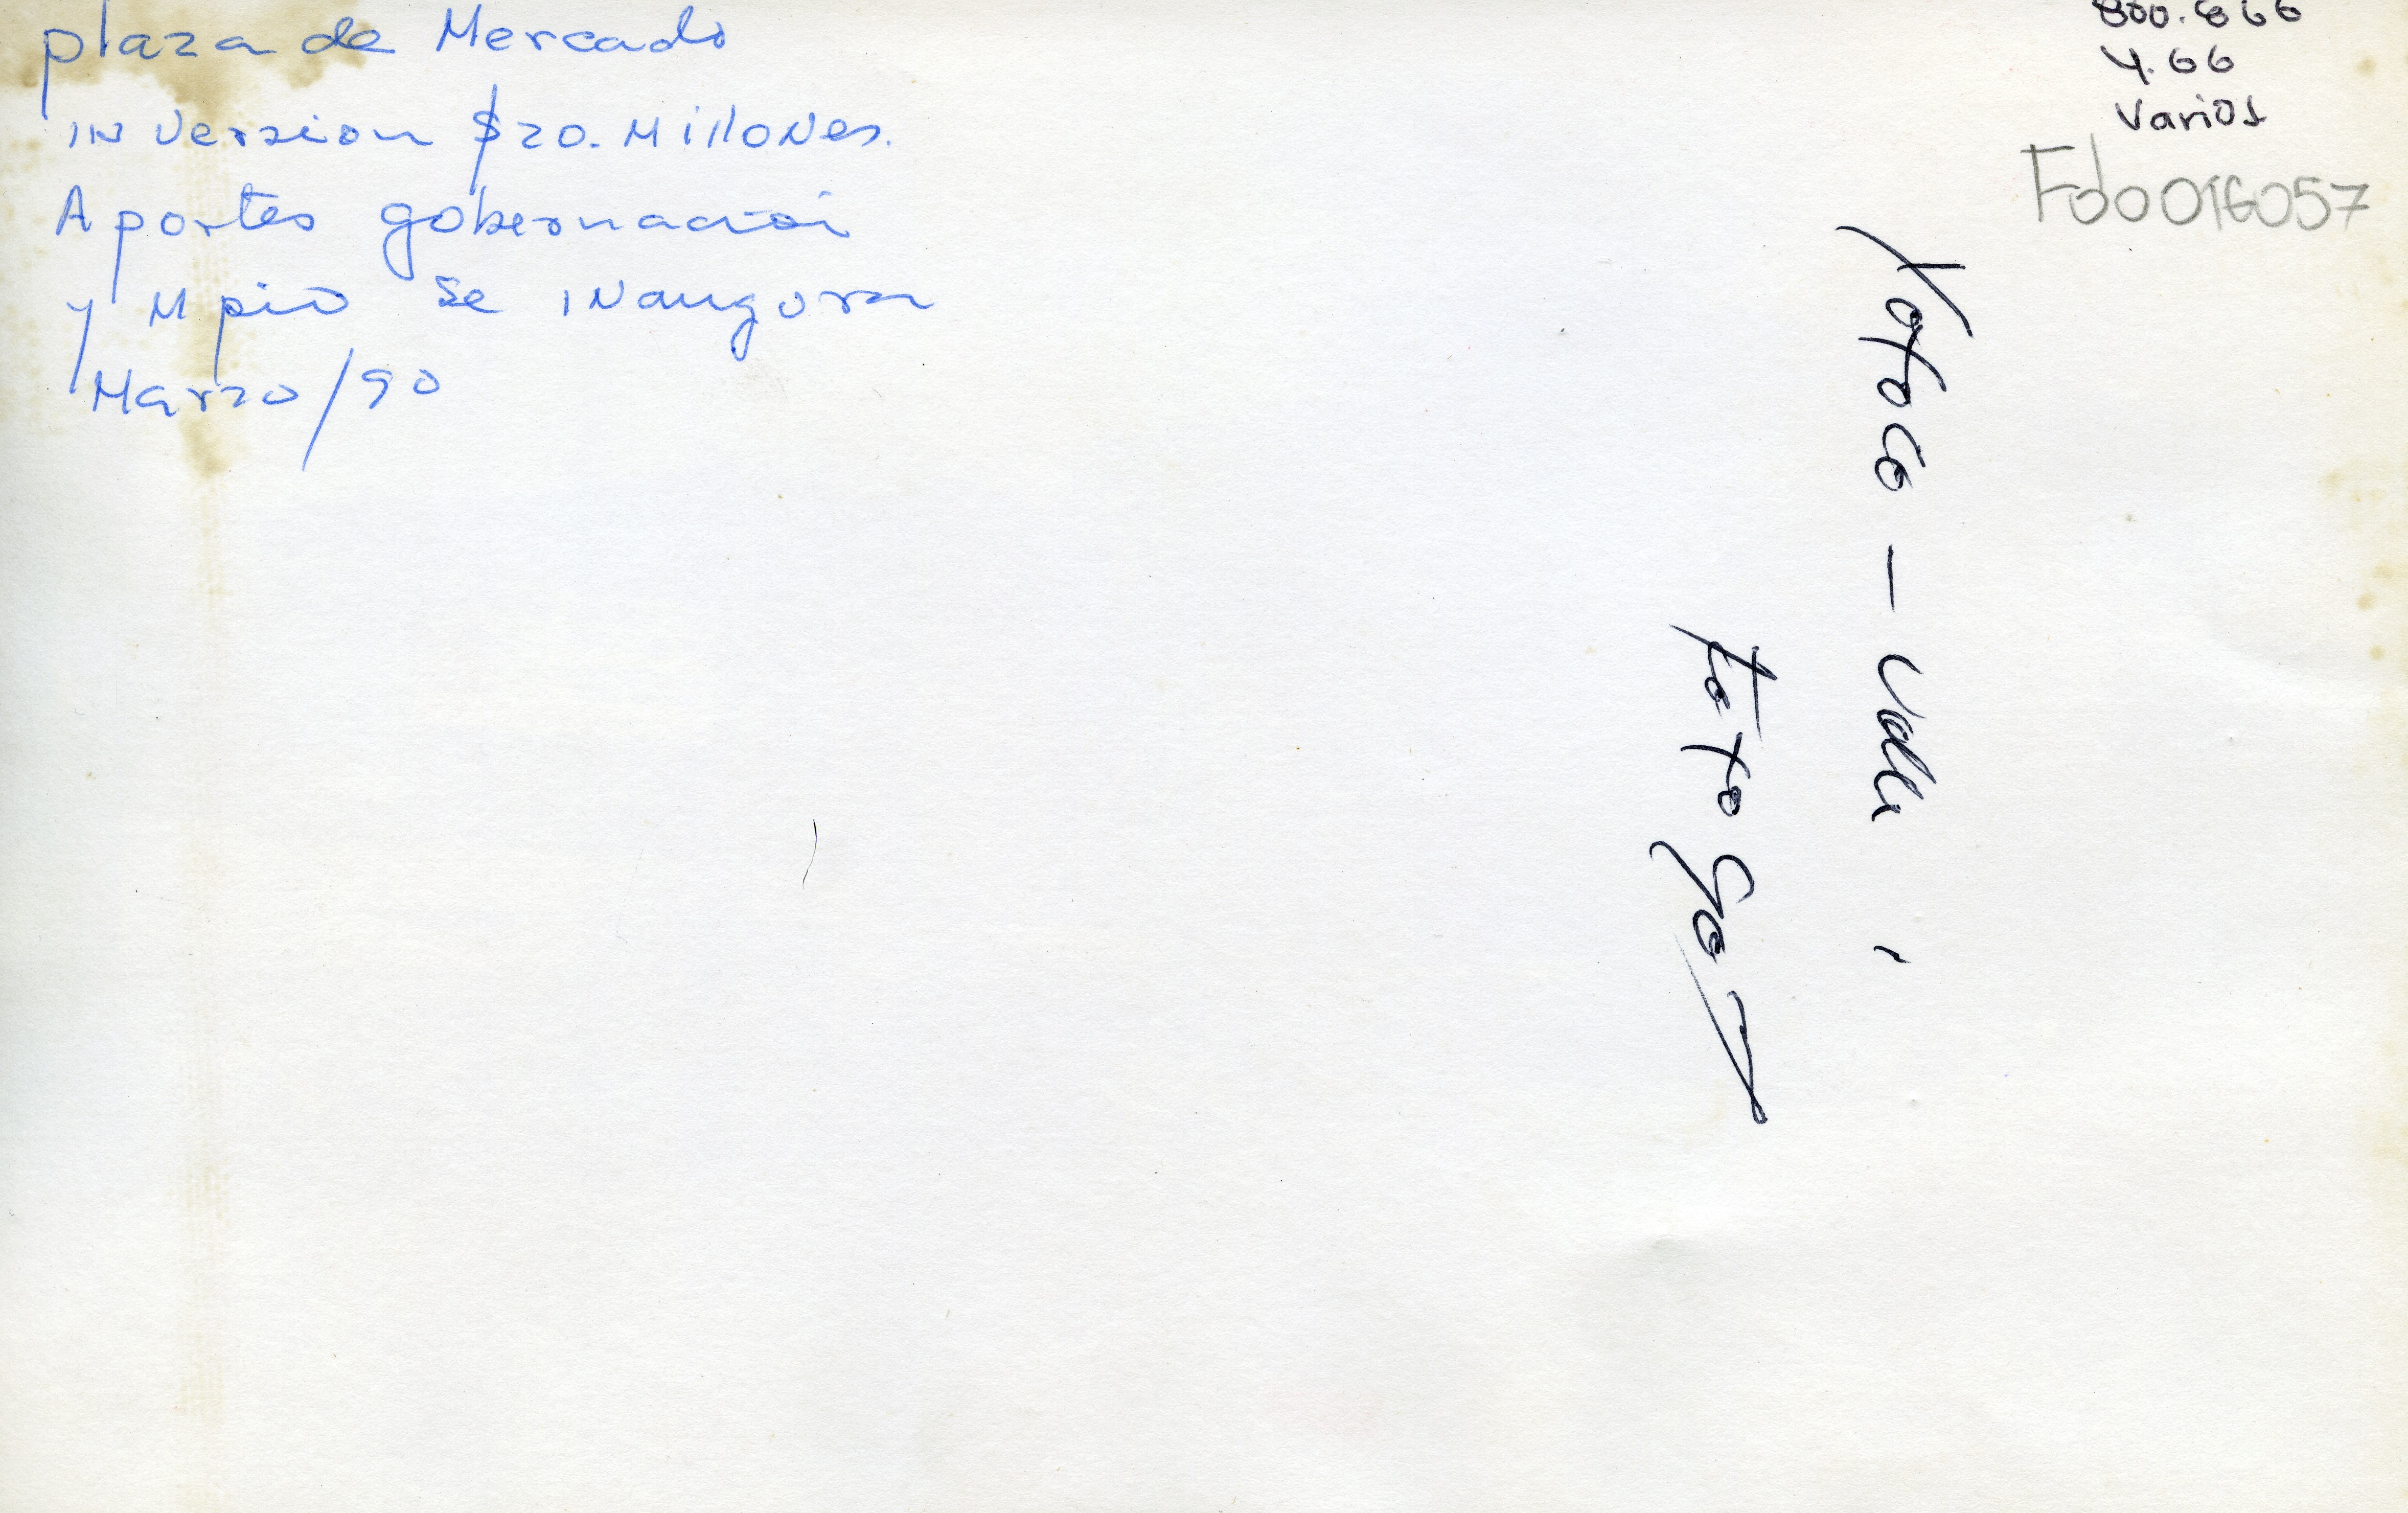 plaza de Mercado
INversion $20. MillONes.
Aportes gobernacion
y Mpio se INaugura
Marzo/90
800.866
4.66
Varios
Fdo016057
Yotoco - Valle
Foto Gay